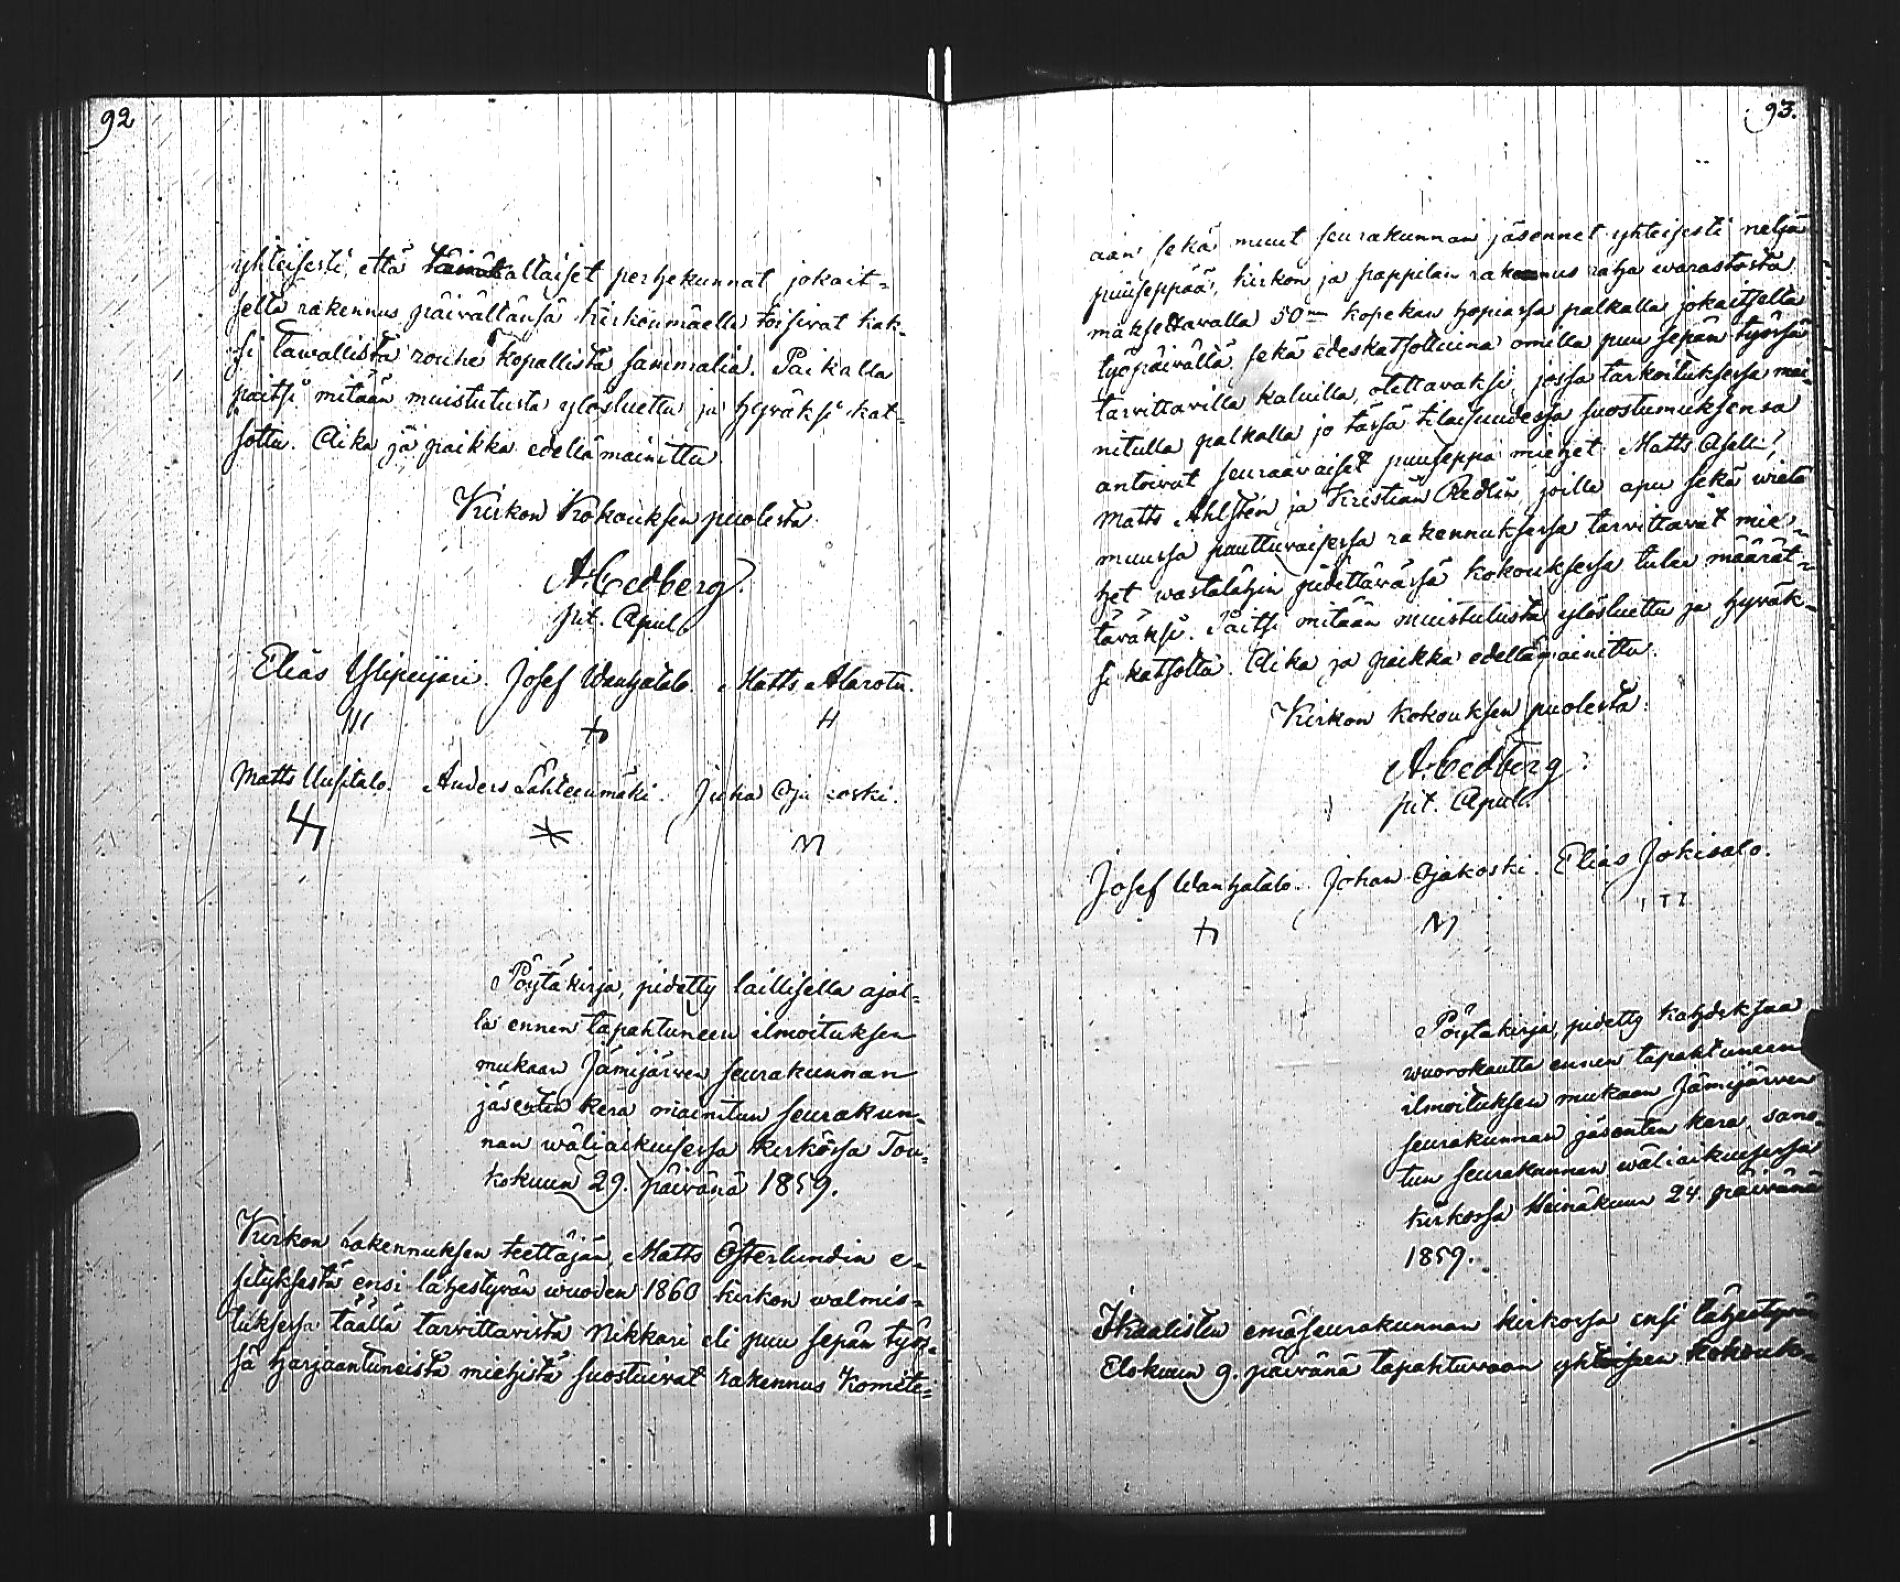 92
yhteisesti, että tämänkaltaiset perhekunnat jokait-
sella rakennus päivällänsä kirkonmäelle toisivat kak-
si tawallista rouhe kopallista sammalia. Paikalla
paitsi mitään muistutusta ylösluettu ja hyväksi kat-
sottu. Aika ja paikka edellämainittu.
Kirkon Kokouksen puolesta
A. Cedberg.
pit. Apul.
Elias Ylipeijari. Josef Wanhatalo. Matts Alarotu.
Matts Uusitalo. Anders Lähteenmäki. Juha Ojakoski.
Pöytäkirja, pidetty laillisella ajal-
la ennen tapahtuneen ilmoituksen
mukaan Jämijärwen seurakunnan
jäsenten kera mainitun seurakun-
nan wäliaikuisessa kirkossa Tou-
kokuun 29. päivänä 1859.
Kirkon rakennuksen teettäjän, Matts Österlundin e-
sityksestä ensi lähestyvän wuoden 1860 kirkon walmis-
tuksessa täällä tarvittavista Nikkari eli puu sepän työs-
sä harjaantuneista miehistä suostuivat rakennus Komite-
93.
aan sekä muut seurakunnan jäsennet yhteisesti neljä
puuseppää, kirkon ja pappilan rakennus raha warastosta
maksettavalla 50 kopekan hopiassa palkalla jokaitsella
työpäivällä, sekä edeskatsottuina omilla puu sepän työssä
tarvittavilla kaluilla, otettavaksi, jossa tarkoituksessa mai-
nitulla palkalla jo tässä tilaisuudessa suostumuksensa
antoivat seuraavaiset puuseppä miehet: Matts
Matts Ahlstén ja Kristian Redlin joille apu sekä wielä
muussa puuttuvaisessa rakennuksessa tarvittavat mie-
het wastalähin pidettävässä kokouksessa tulee määrät-
täväksi. Paitsi mitään muistutusta ylösluettu ja hyväk-
si katsottu. Aika ja paikka edellämainittu.
Kirkon kokouksen puolesta:
A. Cedberg.
pit. Apul.
Josef Wanhatalo. Johan Ojakoski. Elias Jokisalo.
Pöytäkirja, pidetty kahdeksaa
wuorokautta ennen tapahtuneen
ilmoituksen mukaan Jämijärwen
seurakunnan jäsenten kera, sano-
tun seurakunnan wäliaikuisessa
kirkossa Heinäkuun 24. päivänä
1859.
Ikaalisten emäseurakunnan kirkossa ensi lähestyvän
Elokuun 9. päivänä tapahtuvaan yhteiseen kokouk-